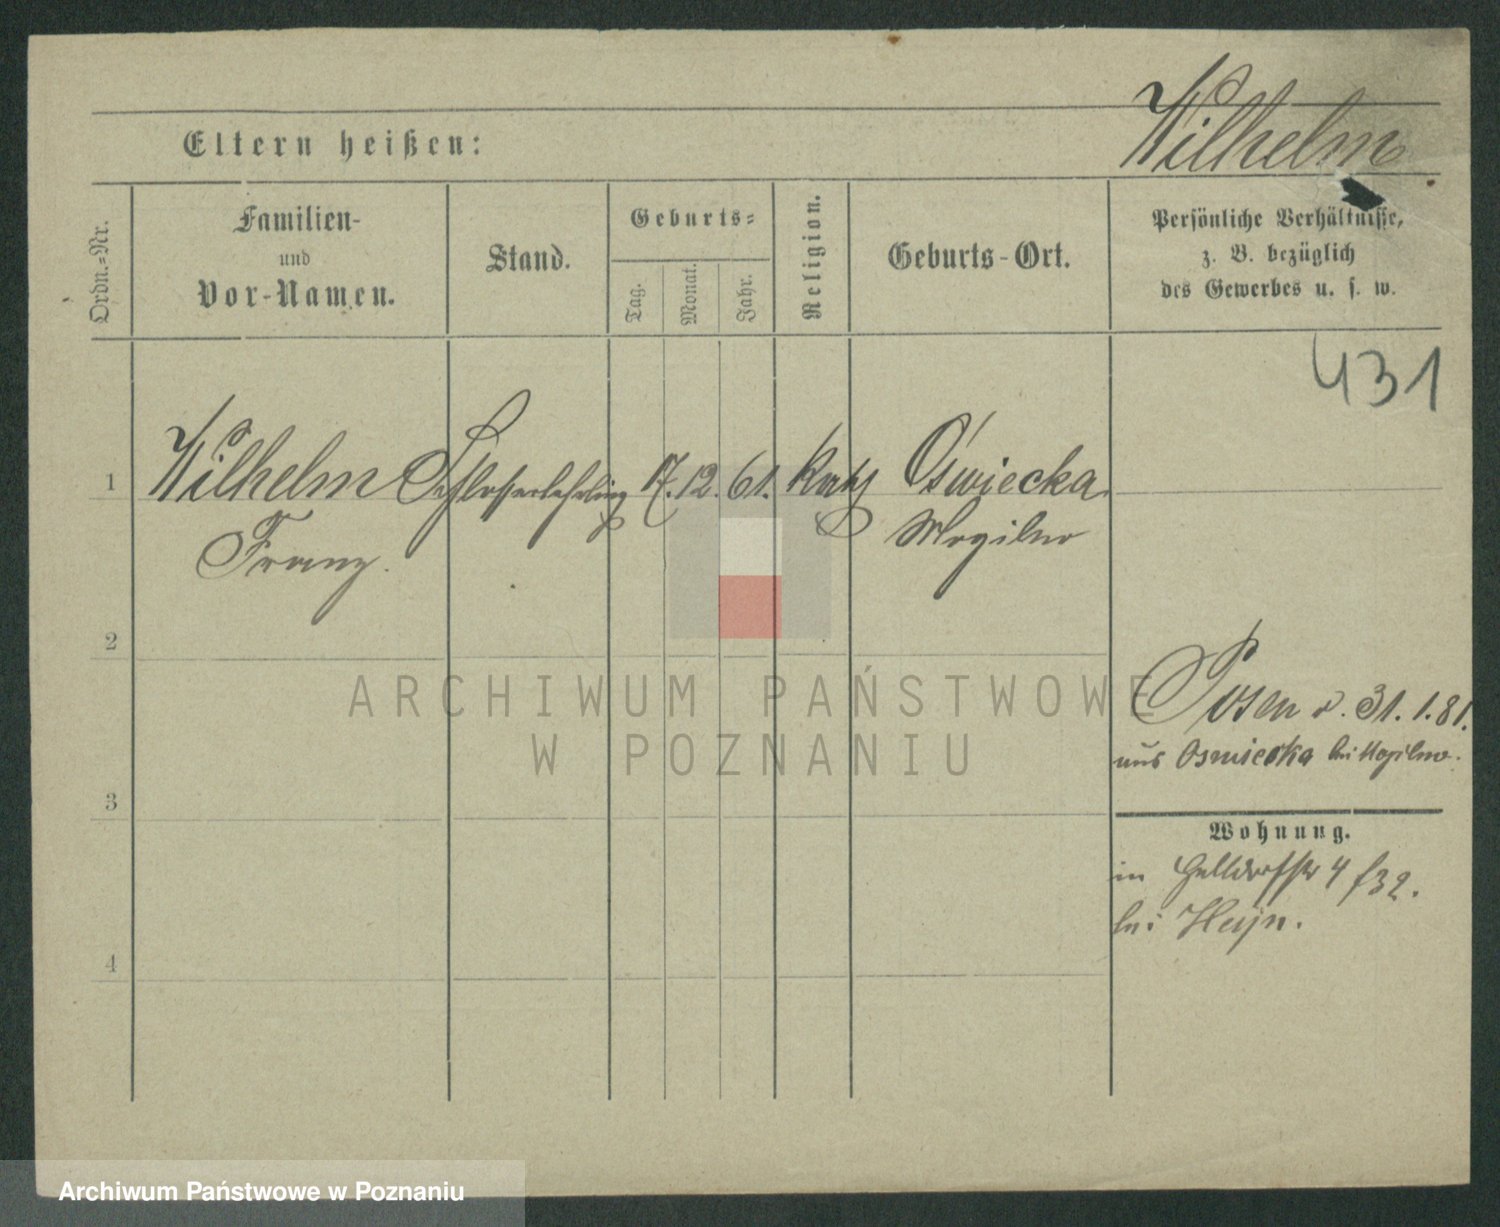 Wilhelm
Eltern heißen:
Ordn.-Nr.
Familien-
und
Vor-Namen.
Stand.
Geburts-
Tag.
Monat.
Jahr.
Religion.
Geburts-Ort.
Persönliche Verhältnisse,
z. B. bezüglich
des Gewerbes u. s. w.
431
1
Wilhelm Schlosserlehrling 17. 12. 61. kath Oświecka
Franz. Mogilno
2
Posen d. 31. 1. 81.
aus Osmiecka bei Mogilno.
ARCHIWUM PAŃSTWOWE
W POZNANIU
3
Wohnung.
in 4
bei Heyn.
4
Archiwum Państwowe w Poznaniu